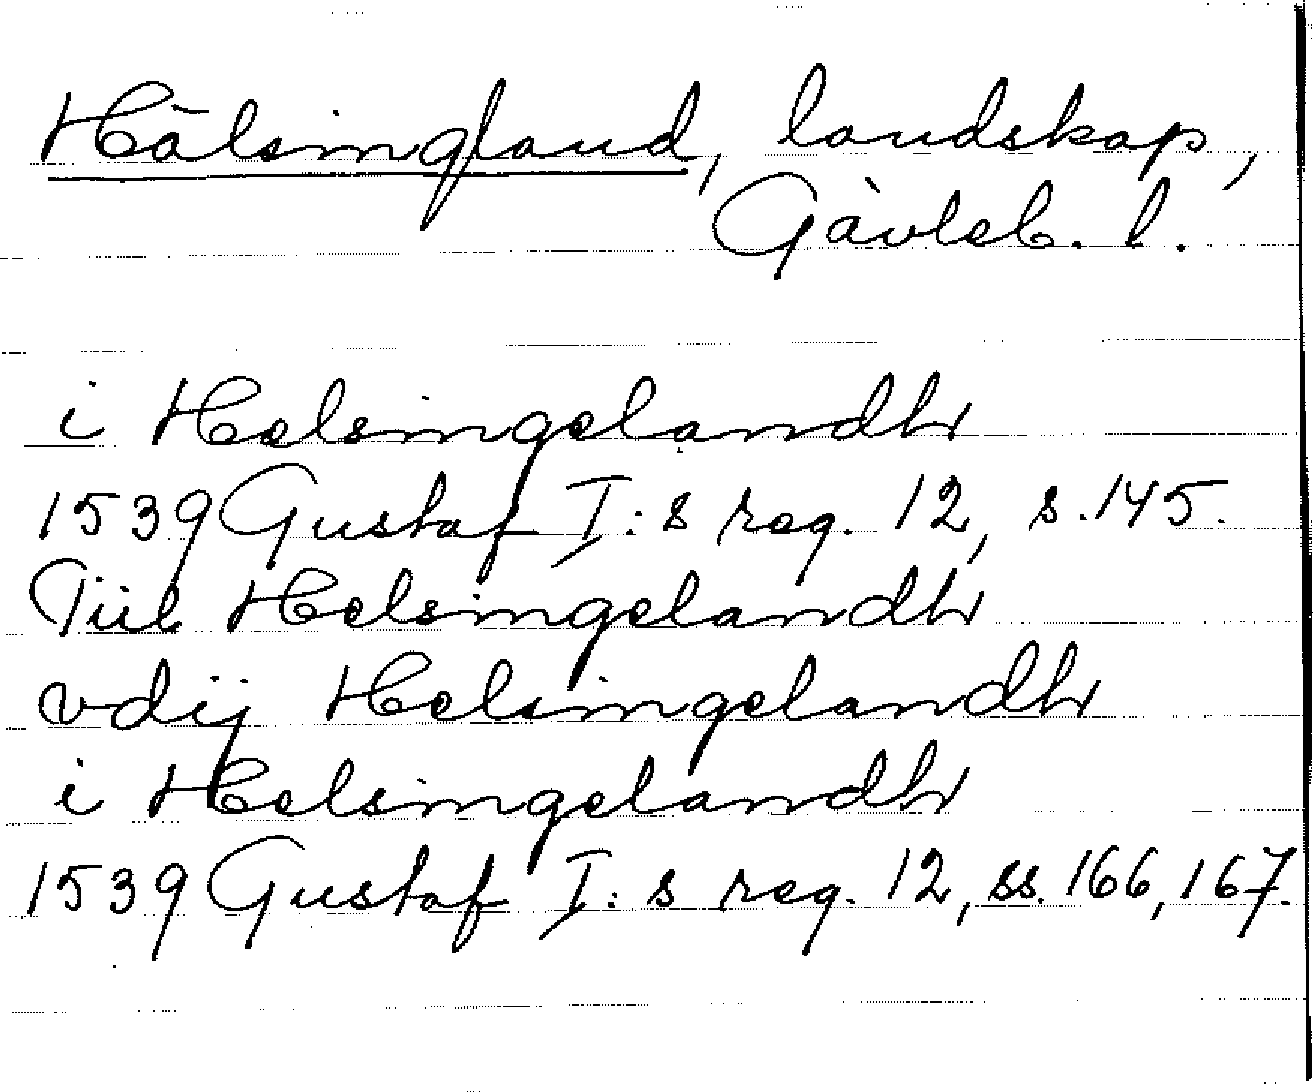 Hälsingland, landskap,
Gävleb. l.
i Helsingelandh
1539 Gustaf I:s reg. 12, s. 145.
Tiil Helsingelandh
vdij Helsingelandh
i Helsingelandh
1539 Gustaf I:s reg. 12, ss. 166, 167.